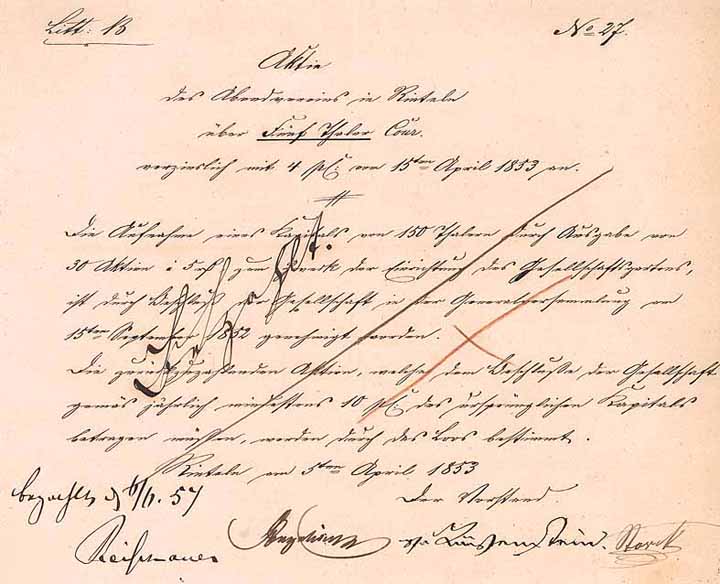 Litt: B
No 27.
Aktie
des Abendvereins in Rinteln
über Fünf Thaler Cour.
verzinslich mit 4 pC vom 15ten April 1853 an.
Die Aufnahme eines Kapitals von 150 Thalern durch Ausgabe von
30 Aktien à 5 rth zum Zweck der Einrichtung des Gesellschaftsgartens,
ist durch Beschluß der Gesellschaft in der Generalversammlung vom
15ten September 1852 genehmigt worden.
Die zurückzuzahlenden Aktien, welche dem Beschlusse der Gesellschaft
gemäs jährlich mindestens 10 pC des ursprünglichen Kapitals
betragen müssen, werden durch das Loos bestimmt.
Rinteln am 5ten April 1853
Der Vorstand.
Bezahlt.
bezahlt d 6/1. 57
Storck